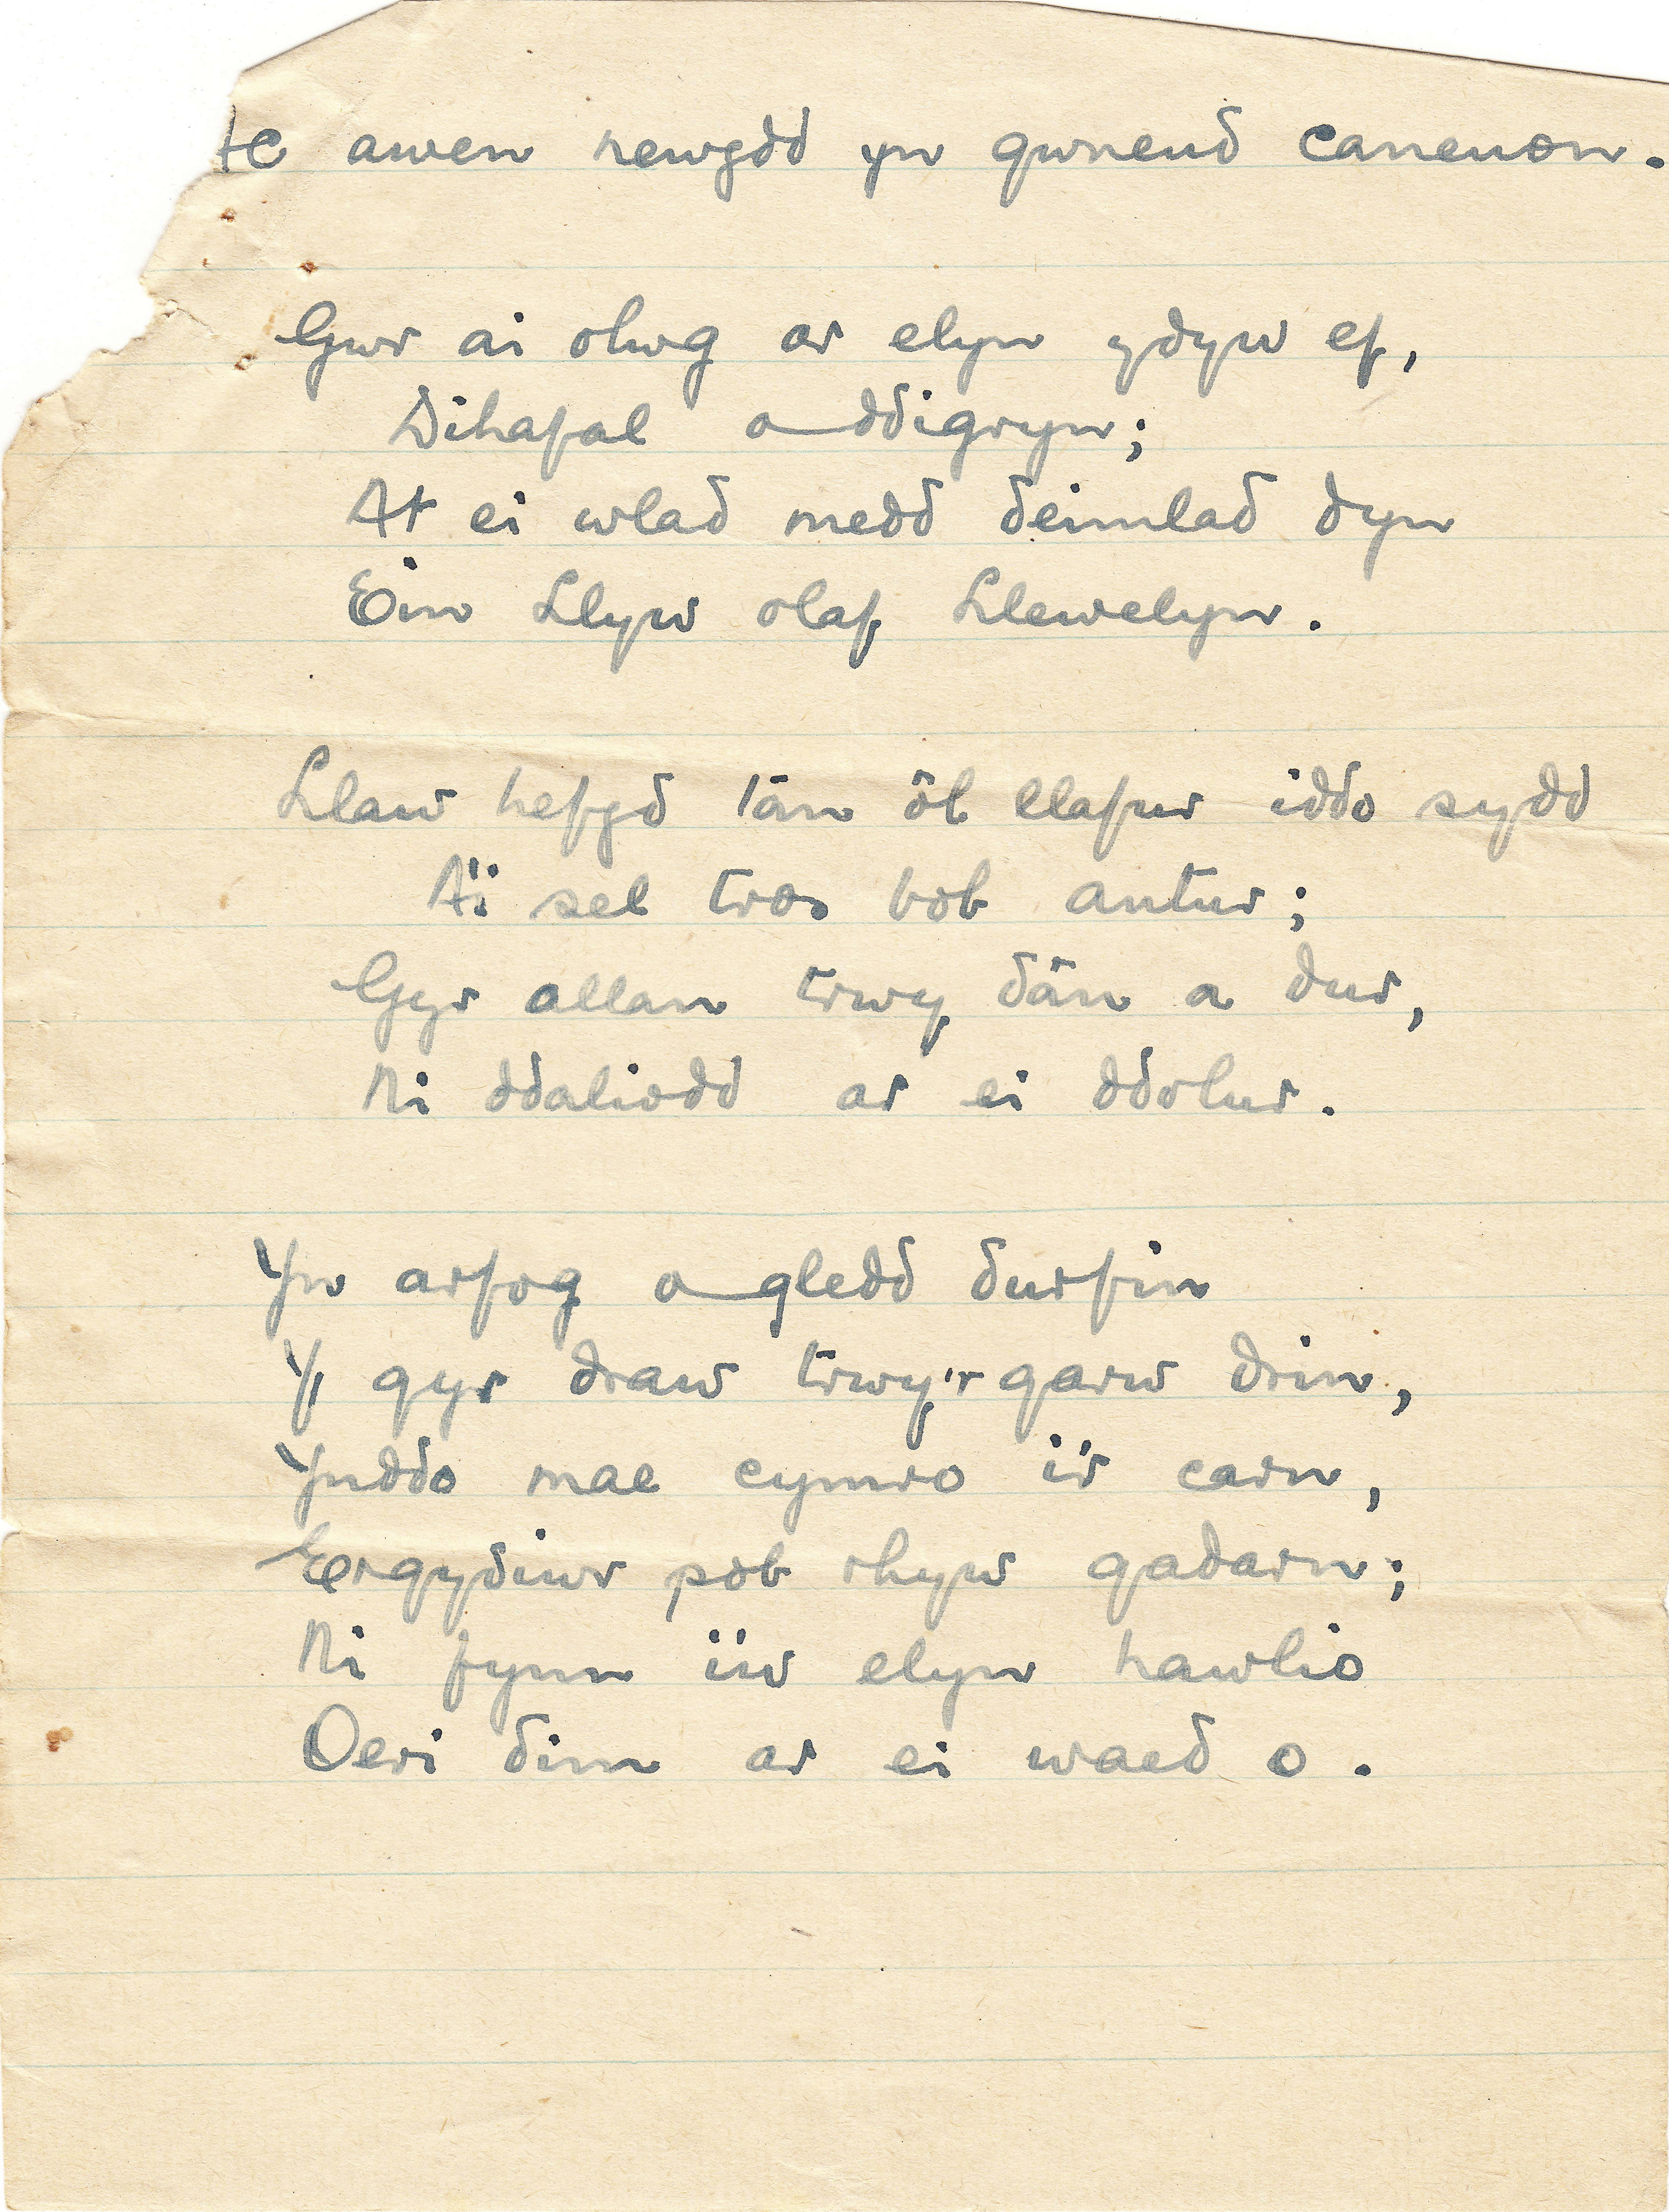 Ac awen newydd yn gwneud canenon.
Gwr ai olwg ar elyn ydyw ef,
Dihafal a ddigryn;
At ei wlad medd deimlad dyn
Ein Llyw olaf Llewelyn.
Llaw hefyd tân ôl llafur iddo sydd
A'i sel tros bob antur;
Gyr allan trwy dân a dur,
Ni ddaliodd ar ei ddolur.
Yn arfog a gledd durfin
Y gyr draw trwy'r garw drin,
Ynddo mae cymro i'r carn,
Ergydiwr pob rhyw gadarn;
Ni fynn i'w elyn hawlio
Oeri dim ar ei waed o.